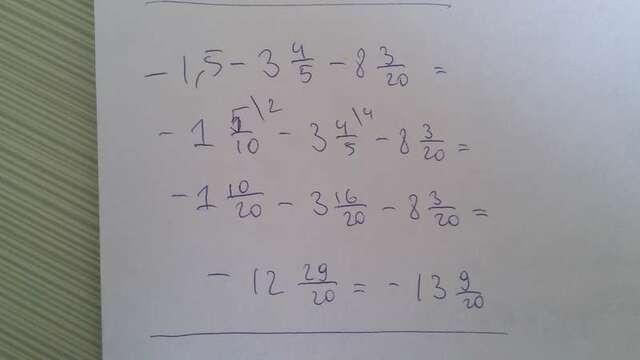 -1,5 - 3 4/5 - 8 3/20 =
-1 5\2/10 - 3 4\4/5 - 8 3/20 =
-1 10/20 - 3 16/20 - 8 3/20 =
-12 29/20 = -13 9/20